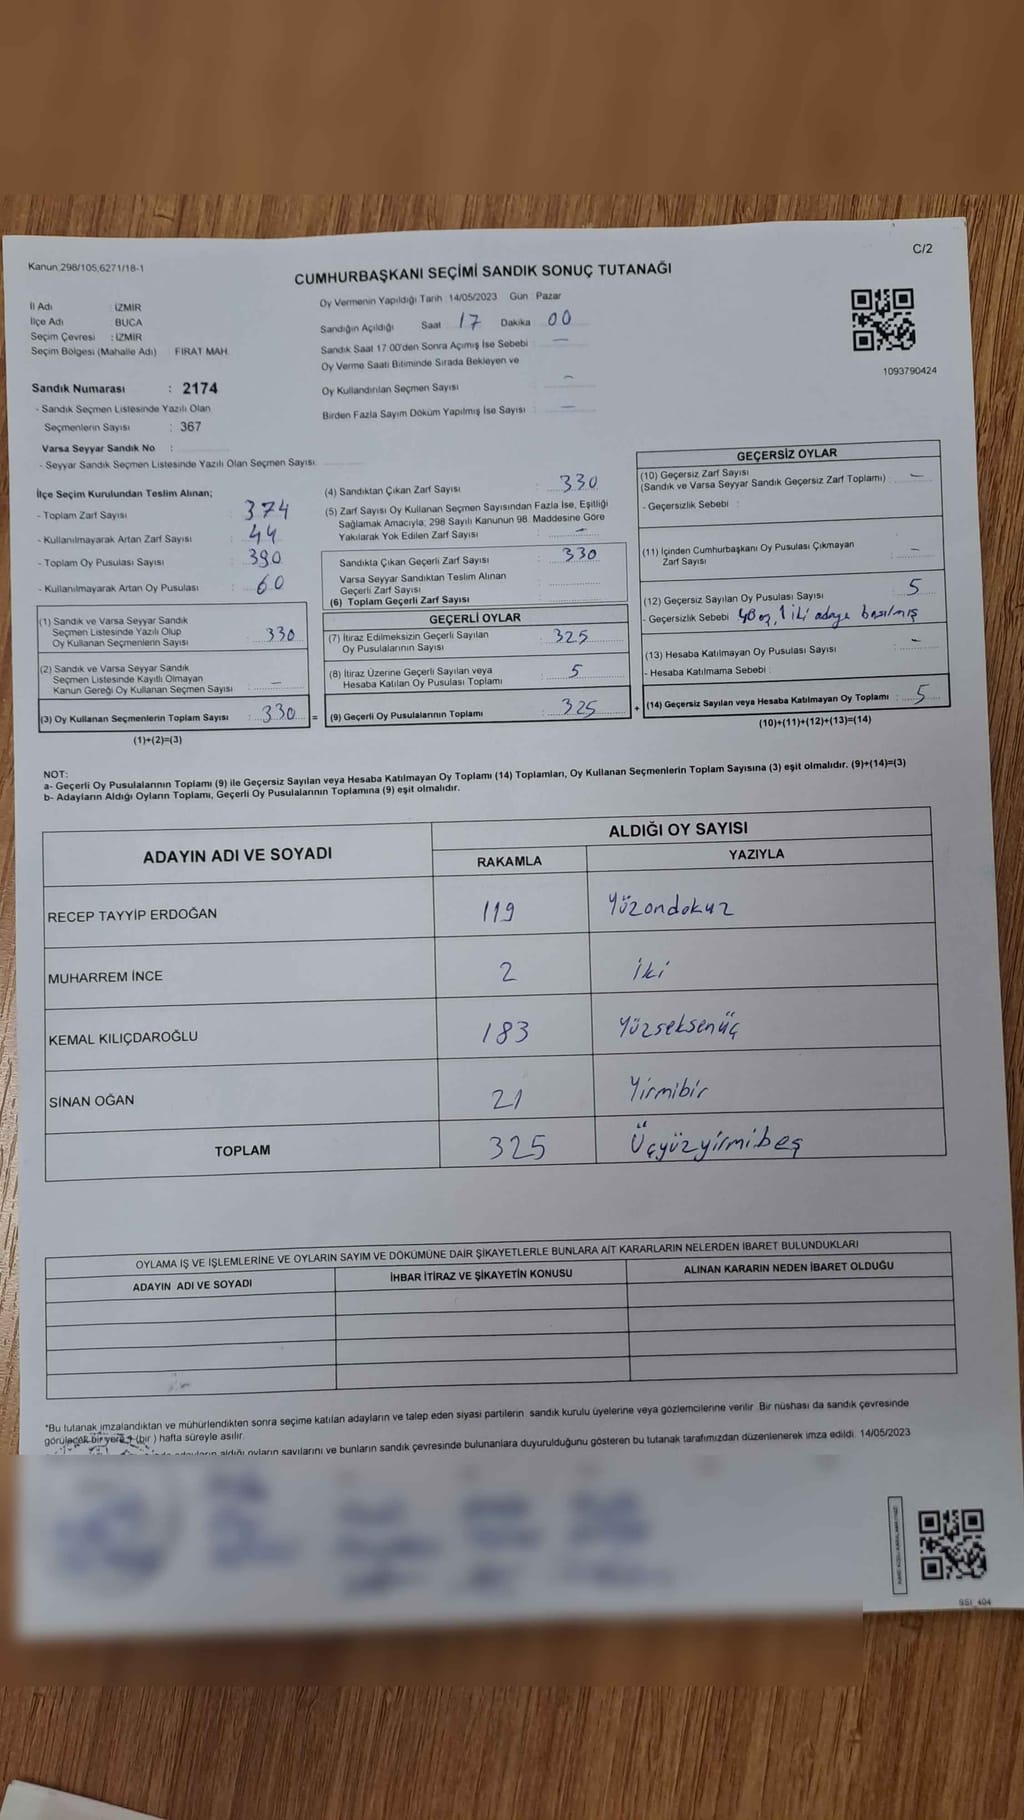 C/2
Kanun 298/105,6271/18-1
CUMHURBAŞKANI SEÇİMİ SANDIK SONUÇ TUTANAĞI
İl Adı : İZMİR
İlçe Adı BUCA
Seçim Çevresi : İZMİR
Seçim Bölgesi (Mahalle Adı) FIRAT MAH.
Sandık Numarası : 2174
- Sandık Seçmen Listesinde Yazılı Olan
Seçmenlerin Sayısı : 367
Varsa Seyyar Sandık No :
- Seyyar Sandık Seçmen Listesinde Yazılı Olan Seçmen Sayısı:
Oy Vermenin Yapıldığı Tarih 14/05/2023 Gün Pazar
Sandığın Açıldığı Saat 17 Dakika 00
Sandık Saat 17:00'den Sonra Açımış İse Sebebi —
Oy Verme Saati Bitiminde Sırada Bekleyen ve
Oy Kullandırılan Seçmen Sayısı —
Birden Fazla Sayım Döküm Yapılmış İse Sayısı —
1093790424
İlçe Seçim Kurulundan Teslim Alınan;
- Toplam Zarf Sayısı : 374
- Kullanılmayarak Artan Zarf Sayısı : 44
- Toplam Oy Pusulası Sayısı : 390
- Kullanılmayarak Artan Oy Pusulası : 60
(1) Sandık ve Varsa Seyyar Sandık
Seçmen Listesinde Yazılı Olup
Oy Kullanan Seçmenlerin Sayısı : 330
(2) Sandık ve Varsa Seyyar Sandık
Seçmen Listesinde Kayıtlı Olmayan
Kanun Gereği Oy Kullanan Seçmen Sayısı : —
(3) Oy Kullanan Seçmenlerin Toplam Sayısı : 330 =
(1)+(2)=(3)
(4) Sandıktan Çıkan Zarf Sayısı : 330
(5) Zarf Sayısı Oy Kullanan Seçmen Sayısından Fazla İse, Eşitliği
Sağlamak Amacıyla; 298 Sayılı Kanunun 98. Maddesine Göre
Yakılarak Yok Edilen Zarf Sayısı : —
Sandıkla Çıkan Geçerli Zarf Sayısı : 330
Varsa Seyyar Sandıktan Teslim Alınan
Geçerli Zarf Sayısı :
(6) Toplam Geçerli Zarf Sayısı :
GEÇERLİ OYLAR
(7) İtiraz Edilmeksizin Geçerli Sayılan
Oy Pusulalarının Sayısı : 325
(8) İtiraz Üzerine Geçerli Sayılan veya
Hesaba Katılan Oy Pusulası Toplamı : 5
(9) Geçerli Oy Pusulalarının Toplamı : 325 +
GEÇERSİZ OYLAR
(10) Geçersiz Zarf Sayısı
(Sandık ve Varsa Seyyar Sandık Geçersiz Zarf Toplamı) : —
- Geçersizlik Sebebi :
(11) İçinden Cumhurbaşkanı Oy Pusulası Çıkmayan
Zarf Sayısı : —
(12) Geçersiz Sayılan Oy Pusulası Sayısı : 5
- Geçersizlik Sebebi 4Boş, 1 iki adaya basılmış
(13) Hesaba Katılmayan Oy Pusulası Sayısı : —
- Hesaba Katılmama Sebebi :
(14) Geçersiz Sayılan veya Hesaba Katılmayan Oy Toplamı : 5
(10)+(11)+(12)+(13)=(14)
NOT:
a- Geçerli Oy Pusulalarının Toplamı (9) ile Geçersiz Sayılan veya Hesaba Katılmayan Oy Toplamı (14) Toplamları, Oy Kullanan Seçmenlerin Toplam Sayısına (3) eşit olmalıdır. (9)+(14)=(3)
b- Adayların Aldığı Oyların Toplamı, Geçerli Oy Pusulalarının Toplamına (9) eşit olmalıdır.
ADAYIN ADI VE SOYADI ALDIĞI OY SAYISI
RAKAMLA YAZIYLA
RECEP TAYYİP ERDOĞAN 119 Yüzondokuz
MUHARREM İNCE 2 İki
KEMAL KILIÇDAROĞLU 183 Yüzseksenüç
SİNAN OĞAN 21 Yirmibir
TOPLAM 325 Üçyüzyirmibeş
OYLAMA İŞ VE İŞLEMLERİNE VE OYLARIN SAYIM VE DÖKÜMÜNE DAİR ŞİKAYETLERLE BUNLARA AİT KARARLARIN NELERDEN İBARET BULUNDUKLARI
ADAYIN ADI VE SOYADI İHBAR İTİRAZ VE ŞİKAYETİN KONUSU ALINAN KARARIN NEDEN İBARET OLDUĞU
*Bu tutanak imzalandıktan ve mühürlendikten sonra seçime katılan adayların ve talep eden siyasi partilerin sandık kurulu üyelerine veya gözlemcilerine verilir. Bir nüshası da sandık çevresinde
görülecek bir yere 1 (bir ) hafta süreyle asılır.
adayların aldığı oyların sayılarını ve bunların sandık çevresinde bulunanlara duyurulduğunu gösteren bu tutanak tarafımızdan düzenlenerek imza edildi. 14/05/2023
SSI_404